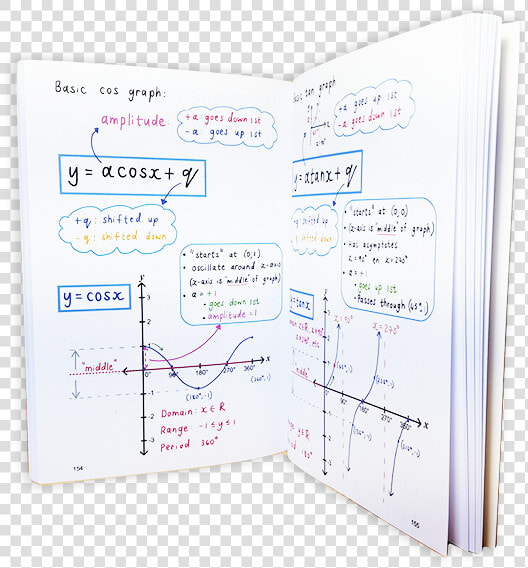 Basic cos graph:
amplitude:
+a goes down 1st
-a goes up 1st
y = acosx + q
+q: shifted up
-q: shifted down
• "starts" at (0,1)
• oscillate around x-axis
(x-axis is "middle" of graph)
• a = +1
• goes down 1st
• amplitude = 1
y = cosx
y
3
2
1
"middle"
0
90°
180°
270°
360°
x
-1
(180°,-1)
(360°,1)
-2
-3
Domain: x ∈ R
Range: -1 ≤ y ≤ 1
Period 360°
154
tan graph
+a goes up 1st
-a goes down 1st
y = atanx + q
shifted up
shifted down
• "starts" at (0,0)
• (x-axis is "middle" of graph)
• Has asymptotes
x = 90° en x = 270°
• a = +1
• goes up 1st
• Passes through (45°,1)
y = tanx
x = 90°
x = 270°
3
90°
180°
270°
360°
x
y ∈ R
180°
155